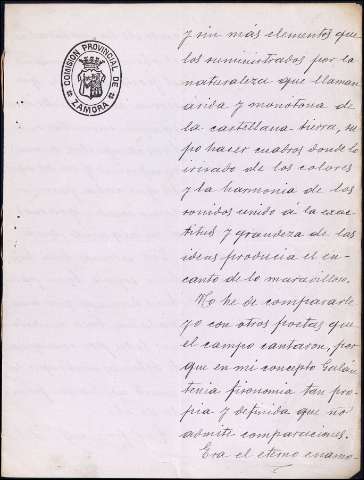 COMISION PROVINCIAL DE ZAMORA
y sin más elementos que
los suministrados por la
naturaleza que llaman
arida y monotona de
la castellana tierra, su-
po hacer cuadros donde lo
irisado de los colores
y la harmonia de los
sonidos unido á la exac-
titud y grandeza de las
ideas producia el en-
canto de lo maravilloso.
No he de compararle
yo con otros poetas que
el campo cantaron, por
que en mi concepto Galán
tenia fisonomia tan pro-
pia y definida que no
admite comparaciones.
Era el eterno enamo-